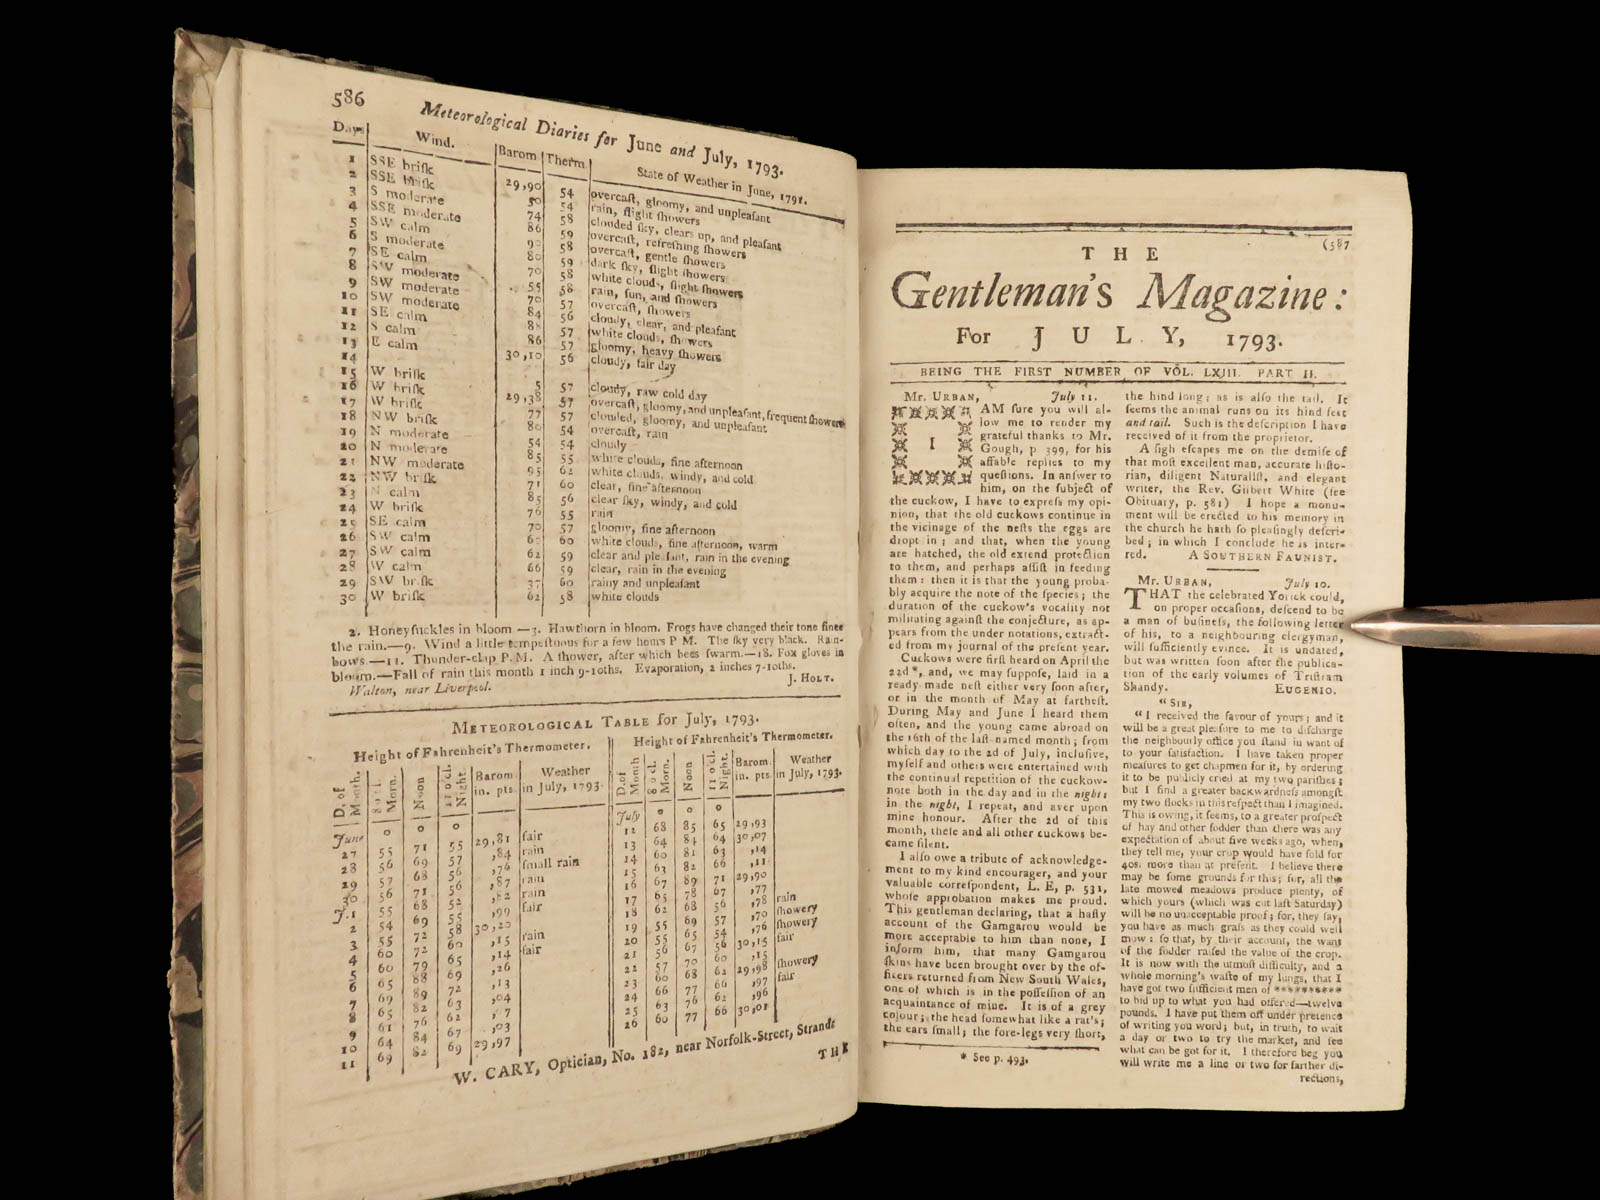 586
Meteorological Diaries for June and July, 1793.
Days Wind. Barom Therm. State of Weather in June, 1791.
1 SSE briſk 29,90 54 overcaſt, gloomy, and unpleaſant
2 SSE briſk 50 54 rain, ſlight ſhowers
3 S moderate 74 58 clouded ſky, clears up, and pleaſant
4 SSE moderate 86 59 overcaſt, refreſhing ſhowers
5 SW calm 90 58 overcaſt, gentle ſhowers
6 S moderate 80 59 dark ſky, ſlight ſhowers
7 SE calm 70 58 white clouds, ſlight ſhowers
8 SW moderate 55 58 rain, ſun, and ſhowers
9 SW moderate 70 57 overcaſt, ſhowers
10 SW moderate 84 56 cloudy, clear, and pleaſant
11 SE calm 57 white clouds, ſhowers
12 S calm 86 57 gloomy, heavy ſhowers
13 E calm 30,10 56 cloudy, fair day
14
15 W briſk 5 57 cloudy, raw cold day
16 W briſk 29,38 57 overcaſt, gloomy, and unpleaſant, frequent ſhowers
17 W briſk 77 57 clouded, gloomy, and unpleaſant
18 NW briſk 80 54 overcaſt, rain
19 N moderate 54 54 cloudy
20 N moderate 85 55 white clouds, fine afternoon
21 NW moderate 95 62 white clouds, windy, and cold
22 NW briſk 71 60 clear, fine afternoon
23 N calm 85 56 clear ſky, windy, and cold
24 W briſk 76 55 rain
25 SE calm 70 57 gloomy, fine afternoon
26 SW calm 60 white clouds, fine afternoon, warm
27 SW calm 62 59 clear and pleaſant, rain in the evening
28 W calm 66 59 clear, rain in the evening
29 SW briſk 37 60 rainy and unpleaſant
30 W briſk 62 58 white clouds
2. Honeyſuckles in bloom.—3. Hawthorn in bloom. Frogs have changed their tone ſince
the rain.—9. Wind a little tempeſtuous for a few hours P M. The ſky very black. Rain-
bows.—11. Thunder-clap P. M. A ſhower, after which bees ſwarm.—18. Fox gloves in
bloom.—Fall of rain this month 1 inch 9-10ths. Evaporation, 2 inches 7-10ths.
Walton, near Liverpool. J. HOLT.
METEOROLOGICAL TABLE for July, 1793.
Height of Fahrenheit's Thermometer. Height of Fahrenheit's Thermometer.
D. of Month. 8 o'cl. Morn. Noon 11 o'cl. Night. Barom. in. pts. Weather in July, 1793. D. of Month 8 o'cl. Morn. Noon 11 o'cl. Night. Barom in. pts. Weather in July, 1793.
June o o o July o o o
27 55 71 55 29,81 fair 12 68 85 65 29,93
28 56 69 57 ,84 rain 13 64 84 64 30,07
29 57 68 56 ,76 ſmall rain 14 60 81 63 ,14
30 56 71 56 ,87 rain 15 63 82 66 ,11
J. 1 55 68 52 ,82 rain 16 67 89 71 29,90
2 54 69 55 ,99 fair 17 65 78 67 ,77
3 55 72 58 30,20 18 62 68 56 ,78 rain
4 60 72 60 ,15 rain 19 55 69 57 ,70 ſhowery
5 60 79 65 ,14 fair 20 55 65 54 ,76 ſhowery
6 65 88 69 ,26 21 56 67 56 30,15 fair
7 69 89 72 ,13 22 57 70 60 ,15
8 65 82 63 ,04 23 60 68 62 29,98 ſhowery
9 61 76 62 24 66 77 66 ,97 fair
10 64 84 67 ,03 25 63 76 62 ,96
11 69 82 69 29,97 26 60 77 66 30,01
W. CARY, Optician, No. 182, near Norfolk-Street, Strand.
THE
(587
THE
Gentleman's Magazine:
For JULY, 1793.
BEING THE FIRST NUMBER OF VOL. LXIII. PART II.
Mr. URBAN, July 11.
I AM ſure you will al-
low me to render my
grateful thanks to Mr.
Gough, p. 399, for his
affable replies to my
queſtions. In anſwer to
him, on the ſubject of
the cuckow, I have to expreſs my opi-
nion, that the old cuckows continue in
the vicinage of the neſts the eggs are
dropt in; and that, when the young
are hatched, the old extend protection
to them, and perhaps aſſiſt in feeding
them: then it is that the young proba-
bly acquire the note of the ſpecies; the
duration of the cuckow's vocality not
militating againſt the conjecture, as ap-
pears from the under notations, extract-
ed from my journal of the preſent year.
Cuckows were firſt heard on April the
22d *, and, we may ſuppoſe, laid in a
ready made neſt either very ſoon after,
or in the month of May at fartheſt.
During May and June I heard them
often, and the young came abroad on
the 16th of the laſt named month; from
which day to the 2d of July, incluſive,
myſelf and others were entertained with
the continual repetition of the cuckow-
note both in the day and in the night:
in the night, I repeat, and aver upon
mine honour. After the 2d of this
month, theſe and all other cuckows be-
came ſilent.
I alſo owe a tribute of acknowledge-
ment to my kind encourager, and your
valuable correſpondent, L. E, p. 531,
whoſe approbation makes me proud.
This gentleman declaring, that a haſty
account of the Gamgarou would be
more acceptable to him than none, I
inform him, that many Gamgarou
ſkins have been brought over by the of-
ficers returned from New South Wales,
one of which is in the poſſeſſion of an
acquaintance of mine. It is of a grey
colour; the head ſomewhat like a rat's;
the ears ſmall; the fore-legs very ſhort,
* See p. 493.
the hind long; as is alſo the tail. It
ſeems the animal runs on its hind feet
and tail. Such is the deſcription I have
received of it from the proprietor.
A ſigh eſcapes me on the demiſe of
that moſt excellent man, accurate hiſto-
rian, diligent Naturaliſt, and elegant
writer, the Rev. Gilbert White (ſee
Obituary, p. 581) I hope a monu-
ment will be erected to his memory in
the church he hath ſo pleaſingly deſcri-
bed; in which I conclude he is inter-
red. A SOUTHERN FAUNIST.
Mr. URBAN, July 10.
THAT the celebrated Yorick could,
on proper occaſions, deſcend to be
a man of buſineſs, the following letter
of his, to a neighbouring clergyman,
will ſufficiently evince. It is undated,
but was written ſoon after the publica-
tion of the early volumes of Triſtram
Shandy. EUGENIO.
"SIR,
"I received the favour of yours; and it
will be a great pleaſure to me to diſcharge
the neighbourly office you ſtand in want of
to your ſatisfaction. I have taken proper
meaſures to get chapmen for it, by ordering
it to be publicly cried at my two pariſhes;
but I find a greater backwardneſs amongſt
my two flocks in this reſpect than I imagined.
This is owing, it ſeems, to a greater proſpect
of hay and other fodder than there was any
expectation of about five weeks ago, when,
they tell me, your crop would have ſold for
40s. more than at preſent. I believe there
may be ſome grounds for this; for, all the
late mowed meadows produce plenty, of
which yours (which was cut laſt Saturday)
will be no unacceptable proof; for, they ſay,
you have as much graſs as they could well
mow: ſo that, by their account, the want
of the fodder raiſed the value of the crop.
It is now with the utmoſt difficulty, and a
whole morning's waſte of my lungs, that I
have got two ſufficient men of **********
to bid up to what you had offered—twelve
pounds. I have put them off under pretence
of writing you word; but, in truth, to wait
a day or two to try the market, and ſee
what can be got for it. I therefore beg you
will write me a line or two for farther di-
rections,